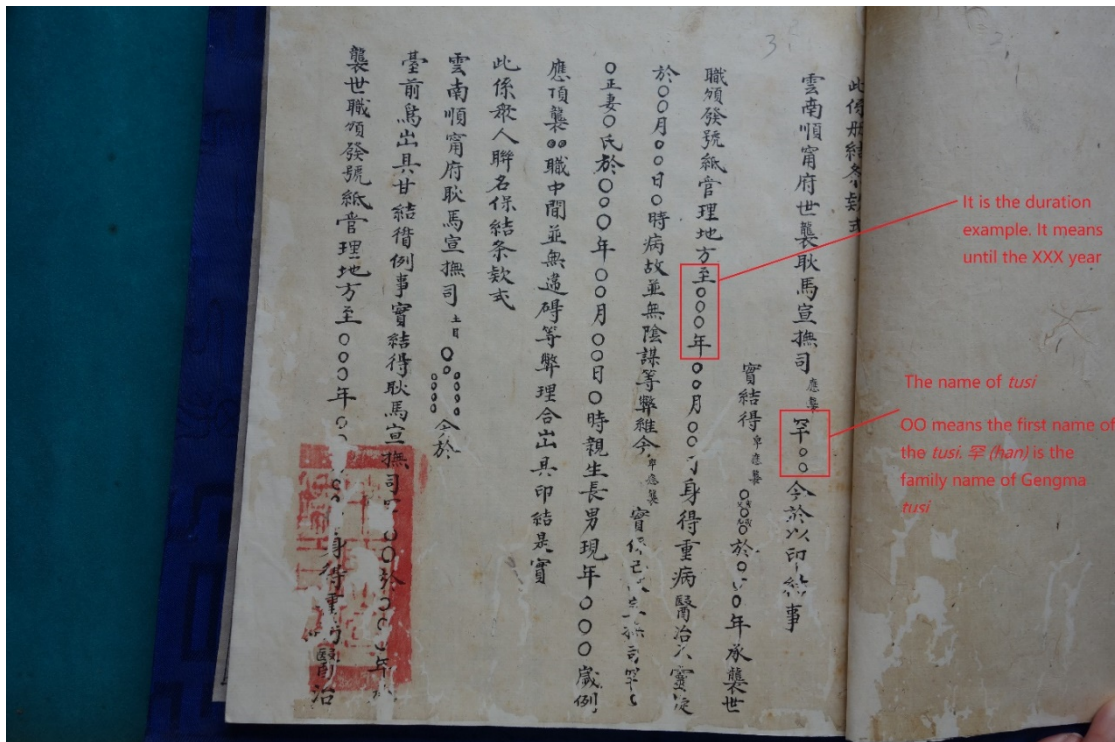 此係册結条款式
雲南順甯府世襲耿馬宣撫司應襲罕○○今於以印結事
實結得卑應襲○○○於○○○年承襲世
職領發號紙管理地方至○○○年○○月○○身得重病醫治不靈旋
於○○月○○日○時病故並無陰謀等弊維今卑應襲實係已司罕
○正妻○氏於○○○年○○月○○日○時親生長男現年○○○歲例
應頂襲○○職中間並無違碍等弊理合出具印結是實
此係衆人聯名保結条款式
雲南順甯府耿馬宣撫司土目○○○○○○○○○○今於
臺前爲出具甘結循例事實結得耿馬宣撫司○○於○○○年
襲世職領發號紙管理地方至○○○年○○○○身得重病醫治
It is the duration
example. It means
until the XXX year
The name of tusi
OO means the first name of
the tusi. 罕 (han) is the
family name of Gengma
tusi